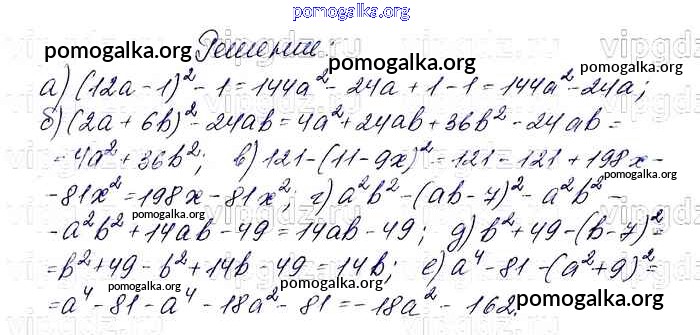 pomogalka.org
pomogalka.org Решение: pomogalka.org
а) (12a - 1)² - 1 = 144a² - 24a + 1 - 1 = 144a² - 24a;
б) (2a + 6b)² - 24ab = 4a² + 24ab + 36b² - 24ab =
= 4a² + 36b²; в) 121 - (11 - 9x)² = 121 - 121 + 198x -
- 81x² = 198x - 81x²; г) a²b² - (ab - 7)² = a²b² -
pomogalka.org pomogalka.org
- a²b² + 14ab - 49 = 14ab - 49; д) b² + 49 - (b - 7)² =
= b² + 49 - b² + 14b - 49 = 14b; е) a⁴ - 81 - (a² + 9)² =
= a⁴ - 81 - a⁴ - 18a² - 81 = -18a² - 162. pomogalka.org
pomogalka.org